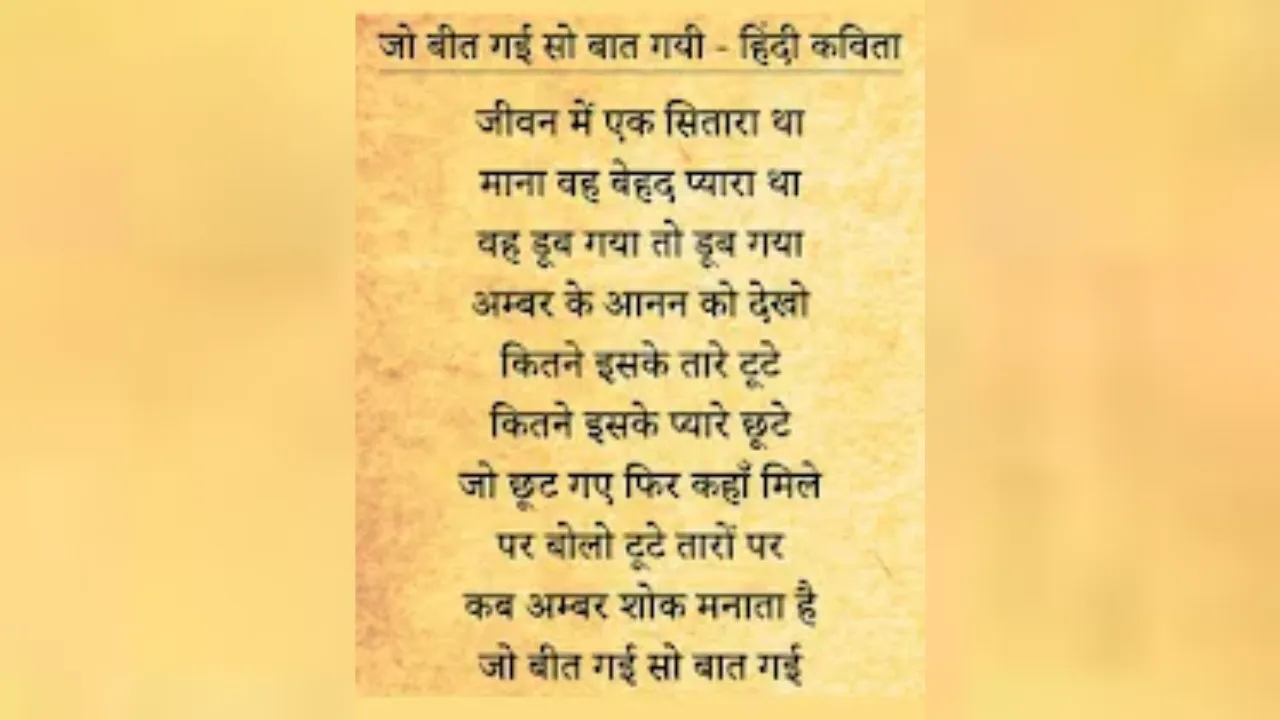 जो बीत गई सो बात गयी - हिंदी कविता
जीवन में एक सितारा था
माना वह बेहद प्यारा था
वह डूब गया तो डूब गया
अम्बर के आनन को देखो
कितने इसके तारे टूटे
कितने इसके प्यारे छूटे
जो छूट गए फिर कहाँ मिले
पर बोलो टूटे तारों पर
कब अम्बर शोक मनाता है
जो बीत गई सो बात गई